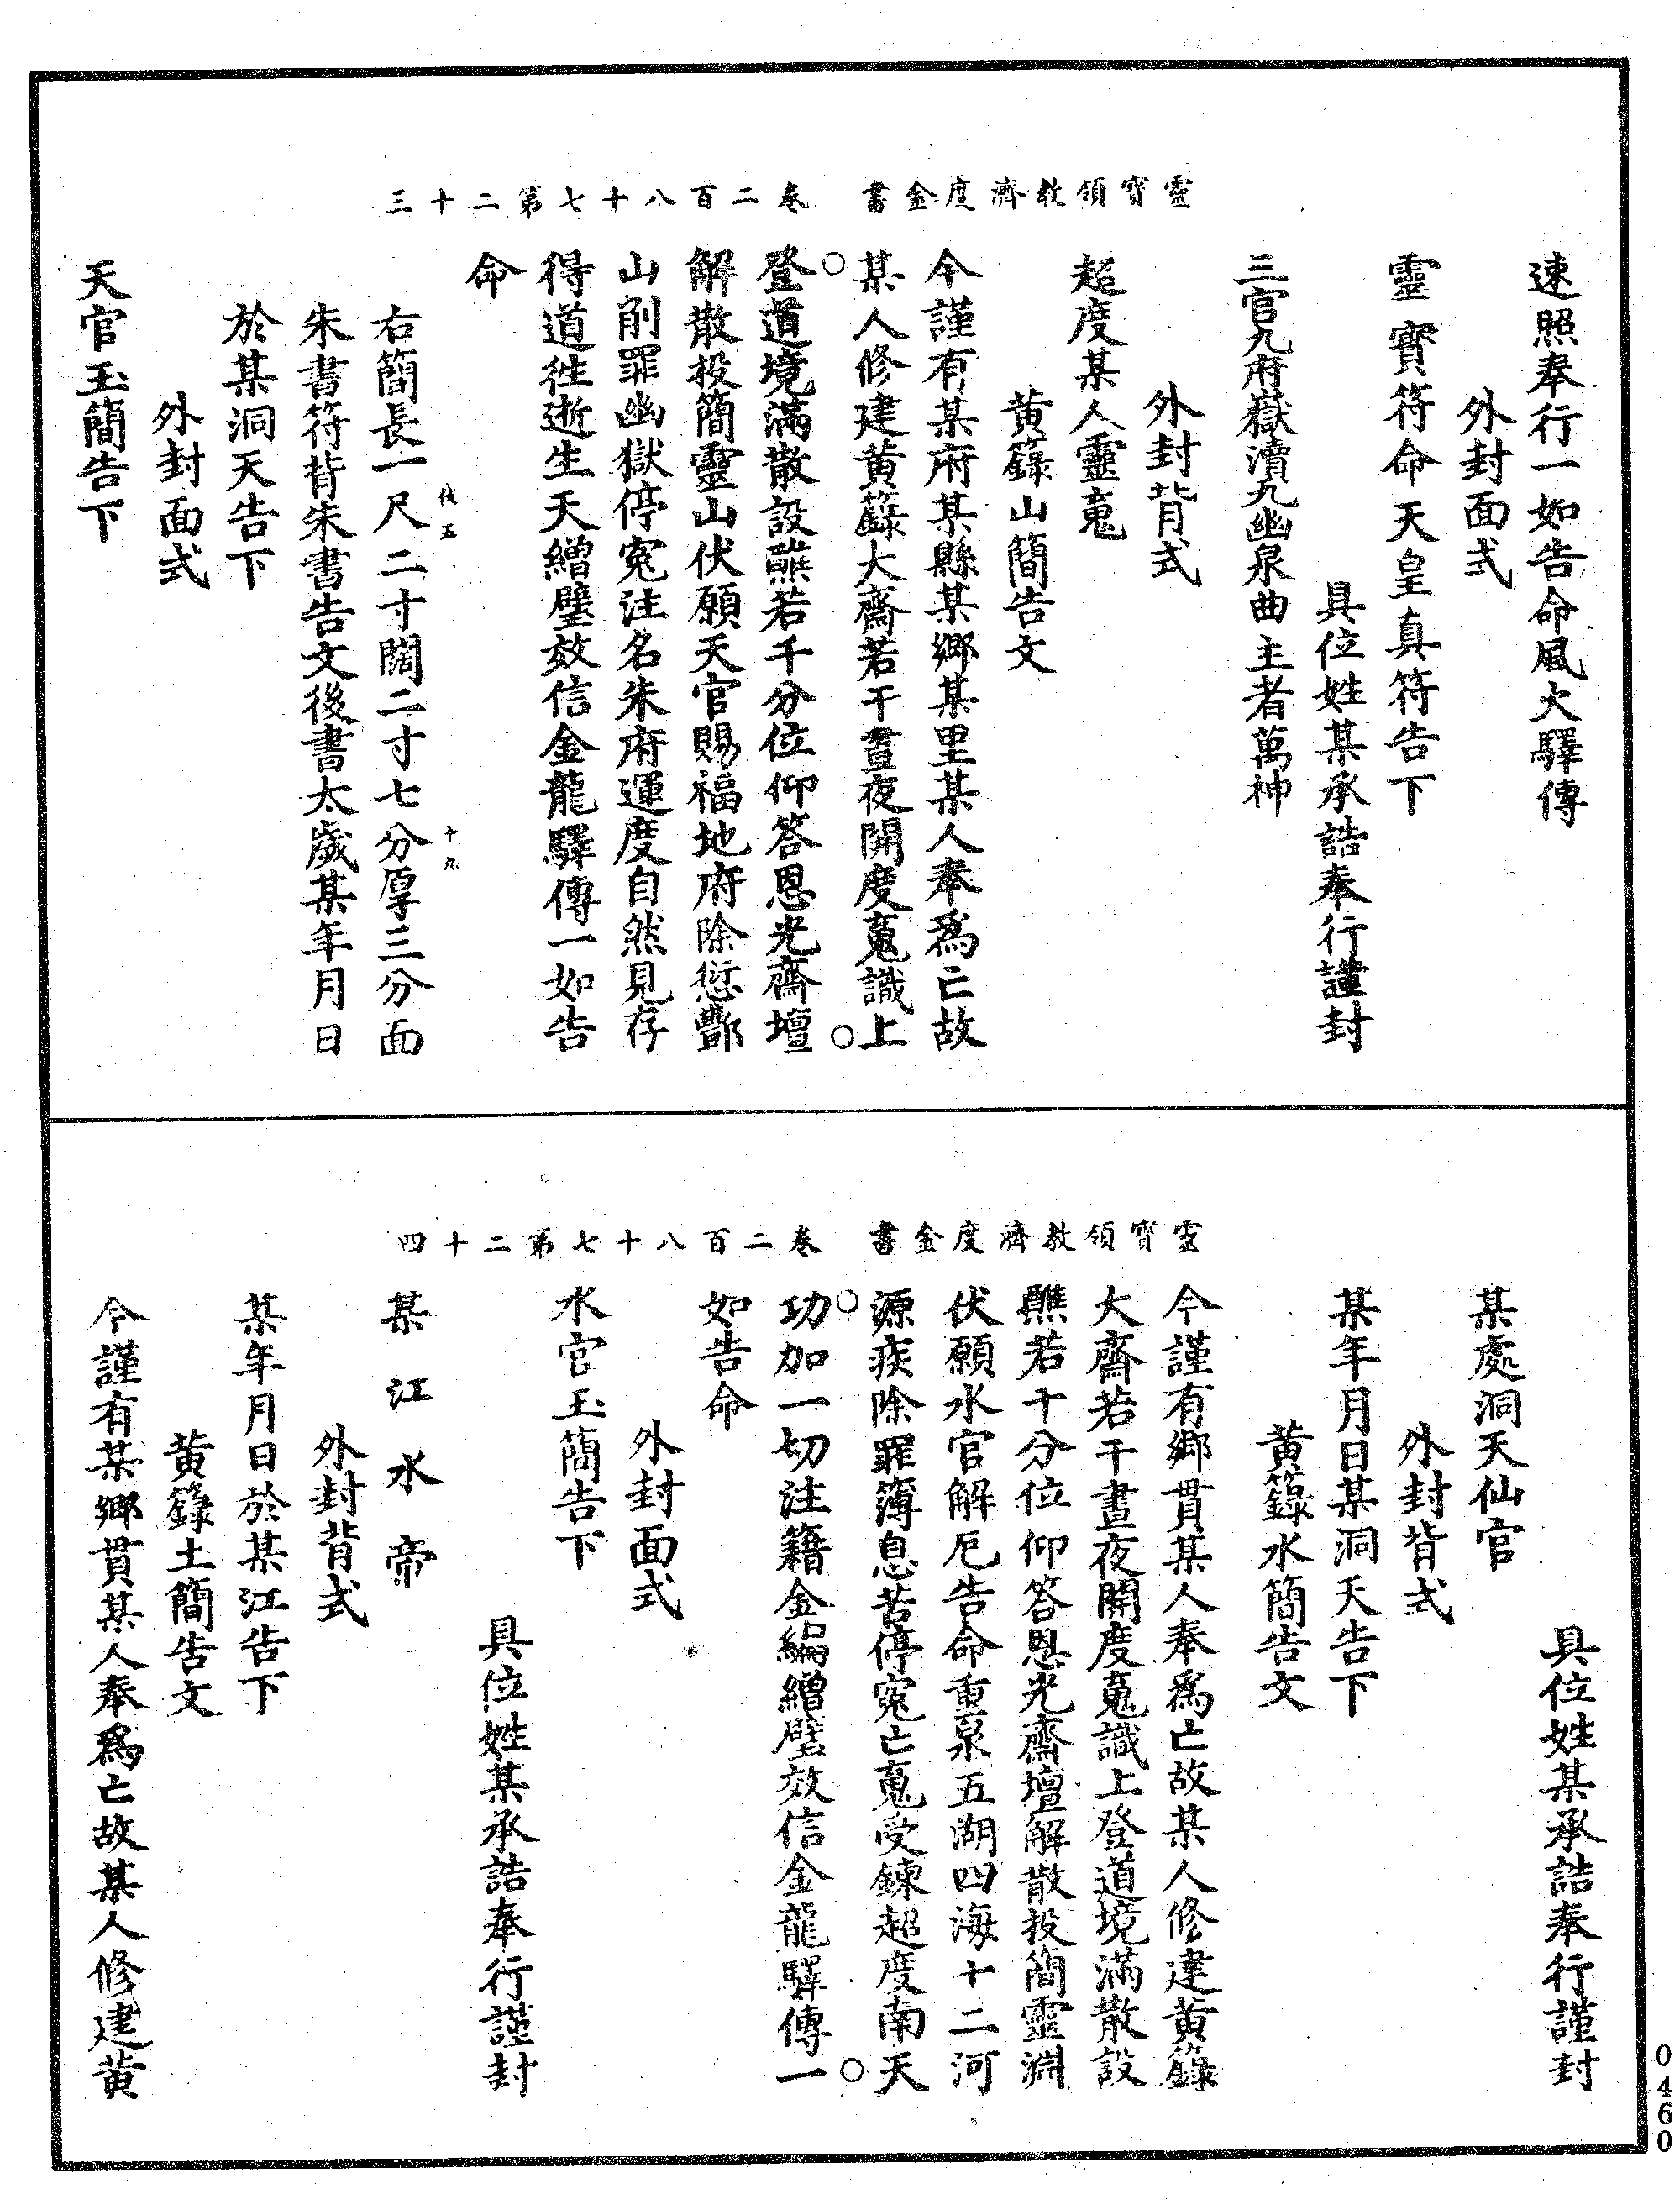 靈寶領教濟度金書　卷二百八十七第二十三
速照奉行一如告命風火驛傳
外封面式
靈寶符命天皇真符告下
具位姓某承誥奉行謹封
三官九府嶽瀆九幽泉曲主者萬神
外封背式
超度某人靈䰟
黄籙山簡告文
今謹有某府某縣某鄉某里某人奉爲亡故
某人修建黄籙大齋若干晝夜開度䰟識上
登道境滿散設醮若干分位仰答恩光齋壇
解散投簡靈山伏願天官賜福地府除愆酆
山削罪幽獄停寃注名朱府運度自然見存
得道徃逝生天繒璧效信金龍驛傳一如告
命
伐五
十九
右簡長一尺二寸闊二寸七分厚三分面
朱書符背朱書告文後書太歲某年月日
於某洞天告下
外封面式
天官玉簡告下
靈寶領教濟度金書　卷二百八十七第二十四
具位姓某承誥奉行謹封
某處洞天仙官
外封背式
某年月日某洞天告下
黄籙水簡告文
今謹有鄉貫某人奉爲亡故某人修建黄籙
大齋若干晝夜開度䰟識上登道境滿散設
醮若干分位仰答恩光齋壇解散投簡靈淵
伏願水官解厄告命重泉五湖四海十二河
源疾除罪簿息苦停寃亡䰟受鍊超度南天
功加一切注籍金編繒璧效信金龍驛傳一
如告命
外封面式
水官玉簡告下
具位姓某承誥奉行謹封
某江水帝
外封背式
某年月日於某江告下
黄籙土簡告文
今謹有某鄉貫某人奉爲亡故某人修建黄
0460